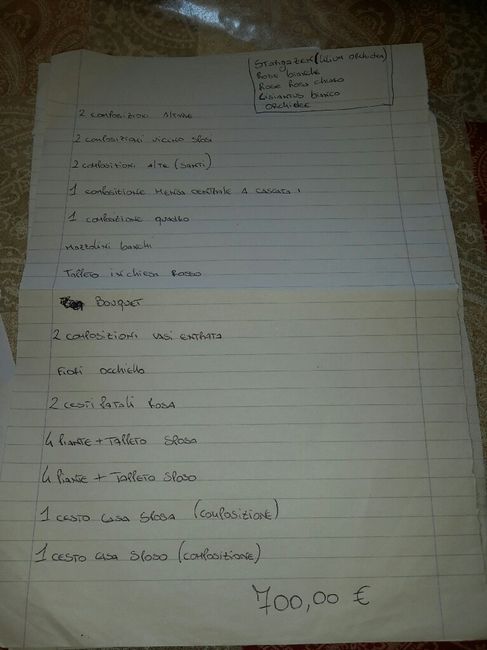 STARGAZER (LILIUM ORCHIDEA)
ROSE BIANCHE
ROSE ROSA CHIARO
LISIANTUS BIANCO
ORCHIDEE
2 COMPOSIZIONI ALTARE
2 COMPOSIZIONI VICINO SPOSI
2 COMPOSIZIONI ALTE (SANTI)
1 COMPOSIZIONE MENSA CENTRALE A CASCATA
1 COMPOSIZIONE QUADRO
MAZZOLINI BANCHI
TAPPETO IN CHIESA ROSSO
BOUQUET
2 COMPOSIZIONI VASI ENTRATA
FIORI OCCHIELLO
2 CESTI PETALI ROSA
4 PIANTE + TAPPETO SPOSA
4 PIANTE + TAPPETO SPOSO
1 CESTO CASA SPOSA (COMPOSIZIONE)
1 CESTO CASA SPOSO (COMPOSIZIONE)
700,00 €